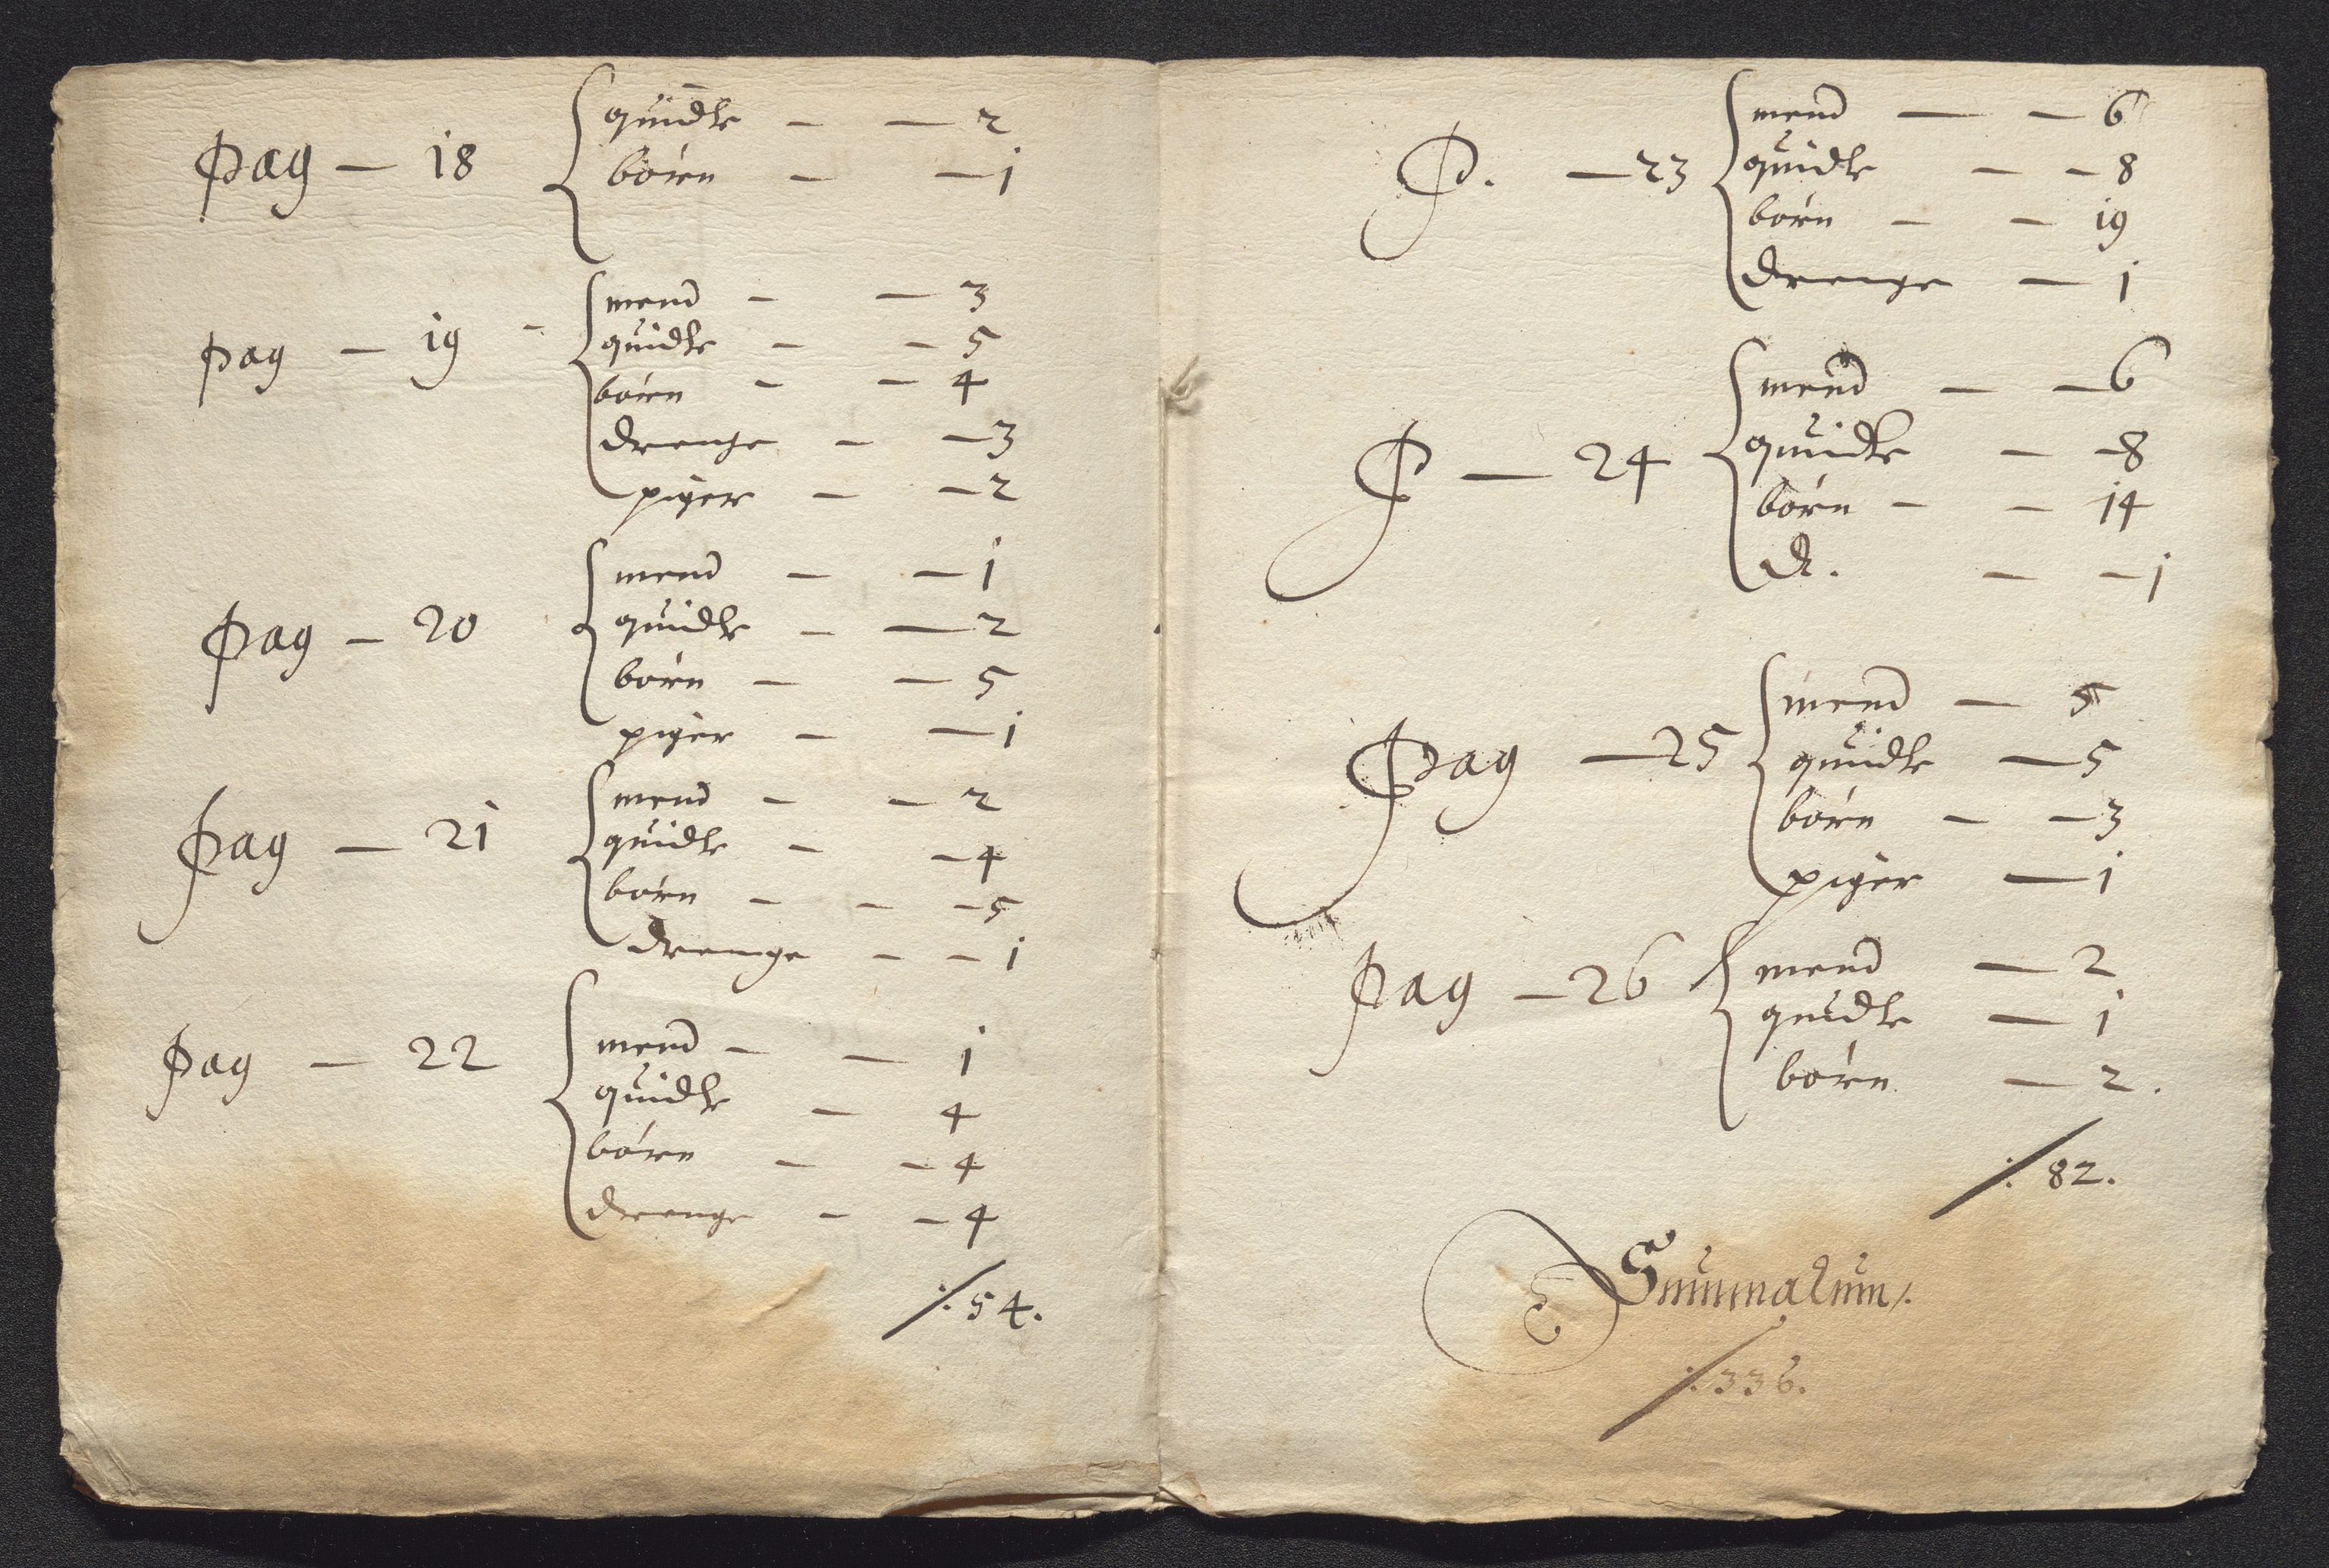 pag — 18 quidle — — 2
börn — — 1
pag — 19 - mend — — 3
quidle — — 5
börn — — 4
drenge — — 3
piger — — 2
pag — 20 mend — — 1
quidle — — 2
börn — — 5
piger — — 1
pag — 21 mend — — 2
quidle — — 4
börn — — — 5
drenge — — 1
pag — 22 mend — — 1
quidle — 4
börn — — 4
drenge — — 4
⁒ 54.
P. — 23 mend — — 6
quidle — — 8
börn — — 19
drenge — 1
P — 24 mend — — 6
quidle — — 8
börn — — 14
dr. — — 1
Pag — 25 mend — 5
quidle — 5
börn — — 3
piger — 1
pag — 26 mend — 2
quidle — 1
börn — 2.
⁒ 82.
Summarum⁒
⁒ 336.